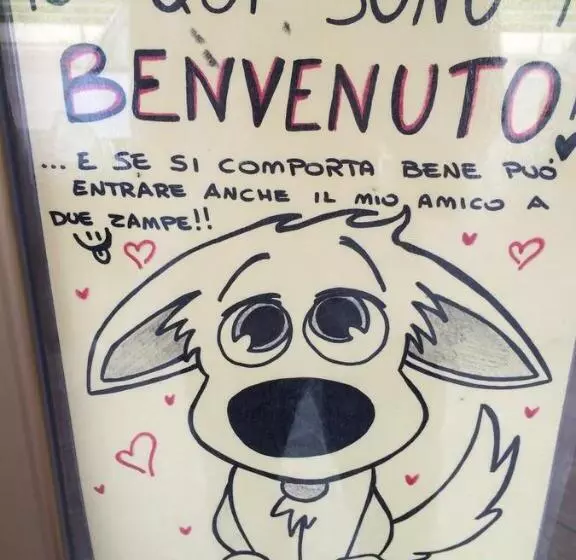 QUI SONO
BENVENUTO!
... E SE SI COMPORTA BENE PUÓ
ENTRARE ANCHE IL MIO AMICO A
DUE ZAMPE!!